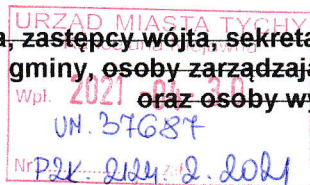 URZĄD MIASTA TYCHY
a, zastępcy wójta, sekreta
gminy, osoby zarządzają
Wpł. 2021 -04- 30
oraz osoby wy
UN. 37687
Nr P2K 2124.2.2021